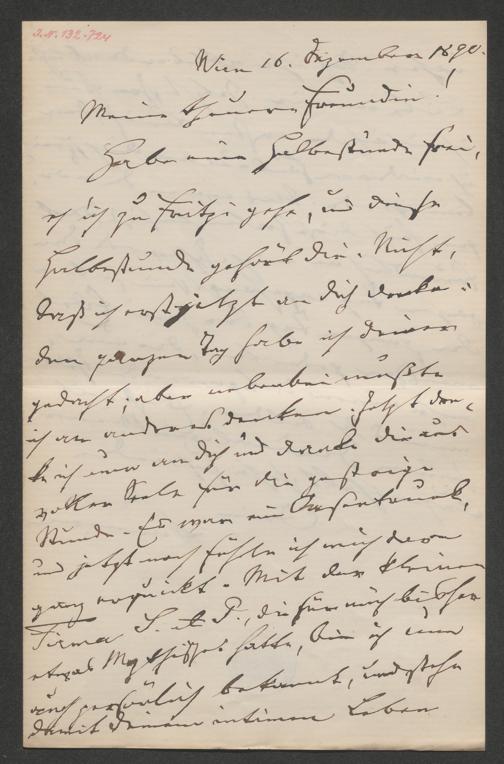 J.N. 132.724
Wien 16. Dezember 1890.
Meine theuere Freundin!
Habe eine halbe Stunde frei,
eh' ich zu Fritzi gehe, und diese
halbe Stunde gehört dir. Nicht,
daß ich erst jetzt an dich denke:
den ganzen Tag habe ich deiner
gedacht; aber nebenbei mußte
ich an anderes denken. Jetzt den-
ke ich nur an dich und danke dir aus
voller Seele für die gestrige
Stunde. Es war ein
und jetzt noch fühle ich mich davon
ganz erquickt. Mit der kleinen
Firma S. & P., die für mich bisher
etwas Mythisches hatte, bin ich nun
auch persönlich bekannt, und stehe
damit deinem intimen Leben